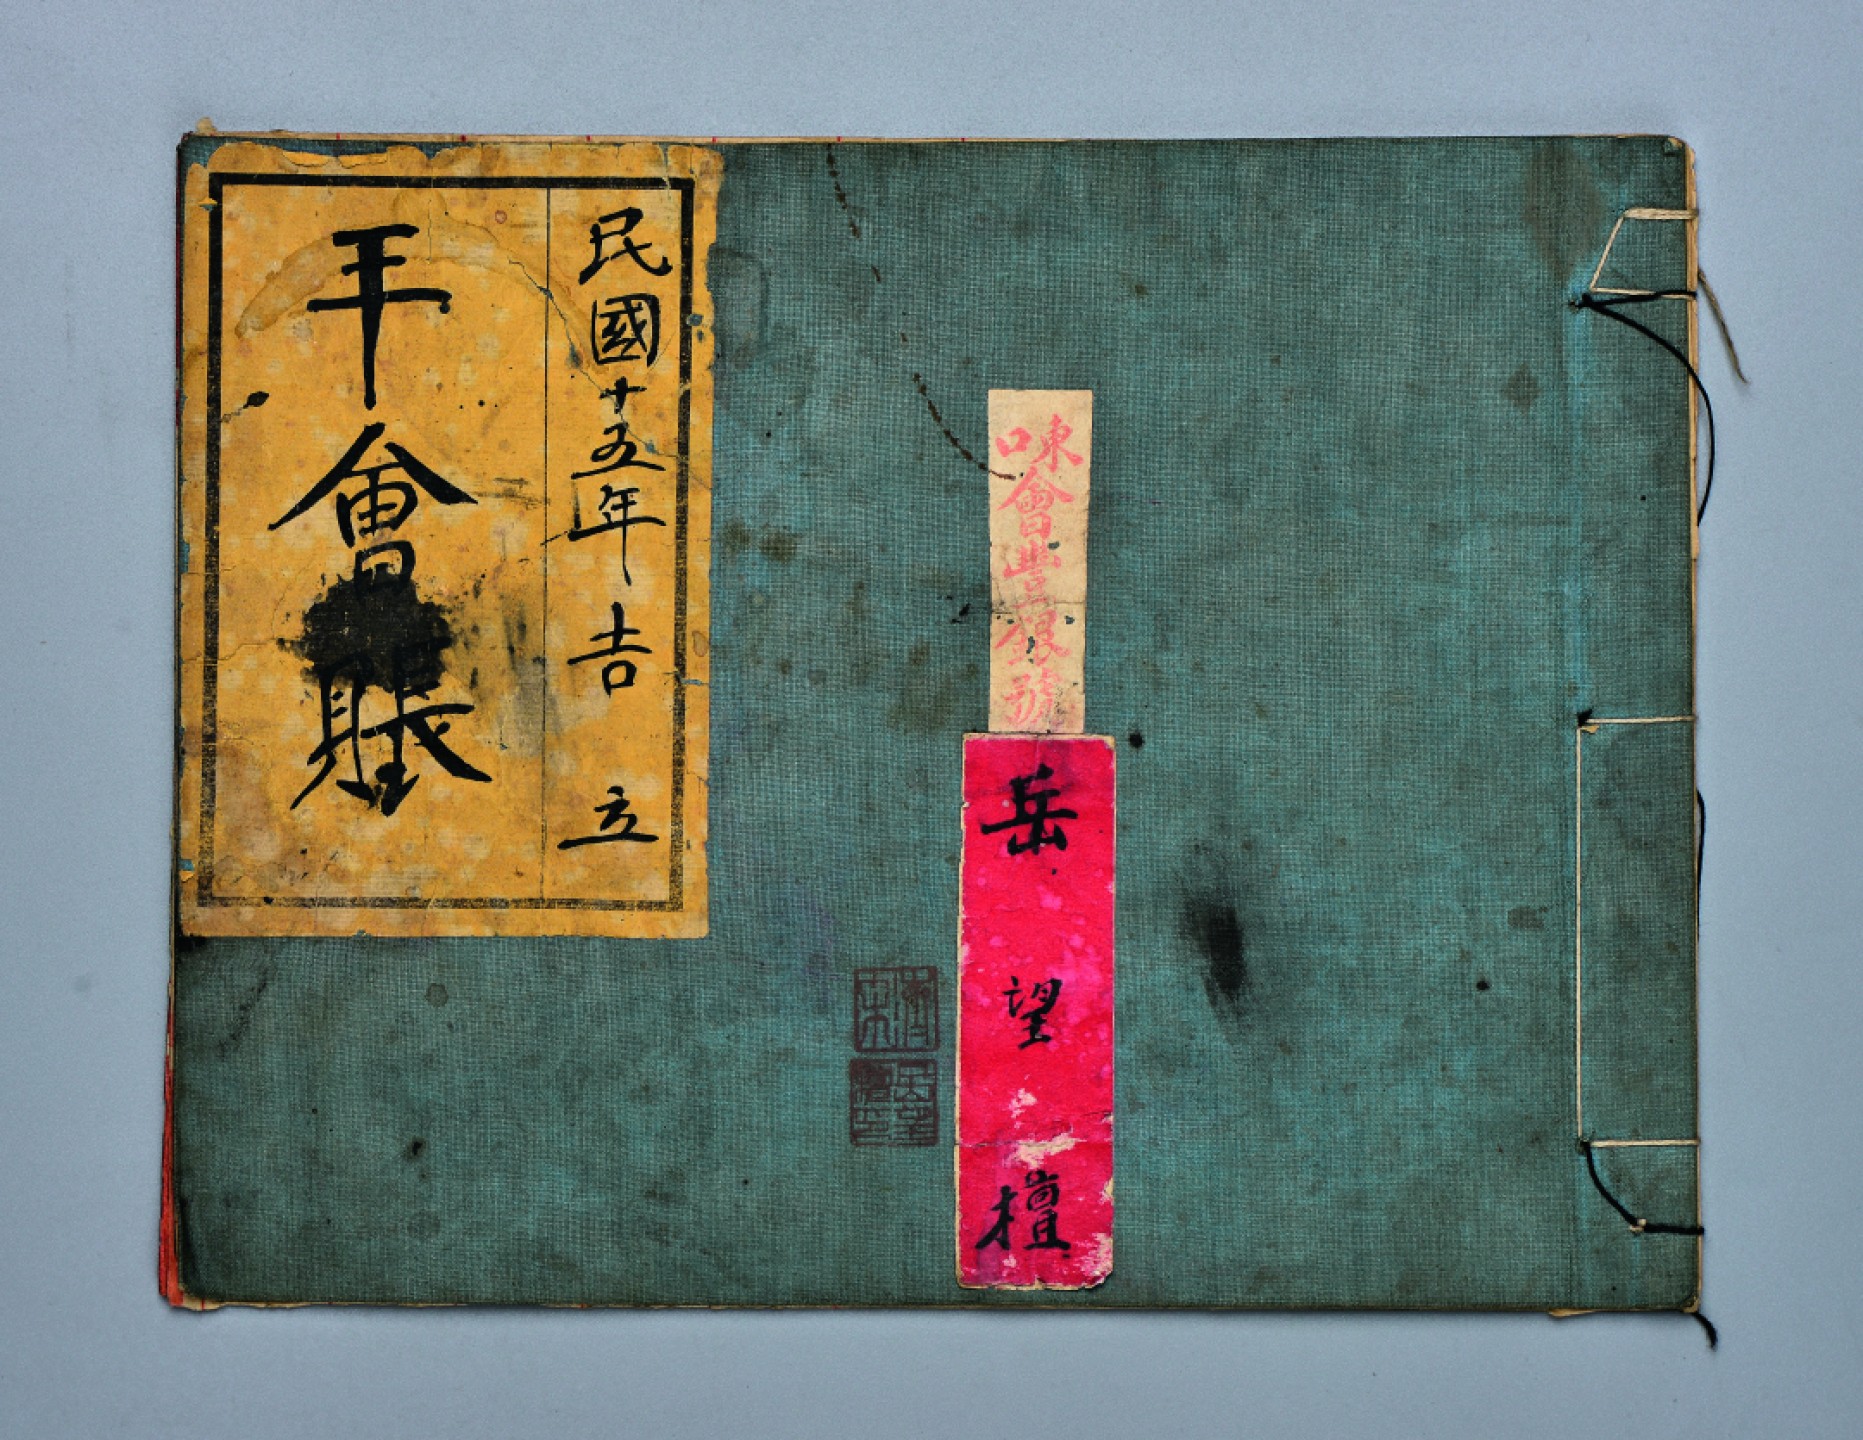 東口會豐銀號
岳望檀
民國十五年吉立
年會賬